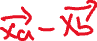 $\overrightarrow{xa} - \overrightarrow{xb}$